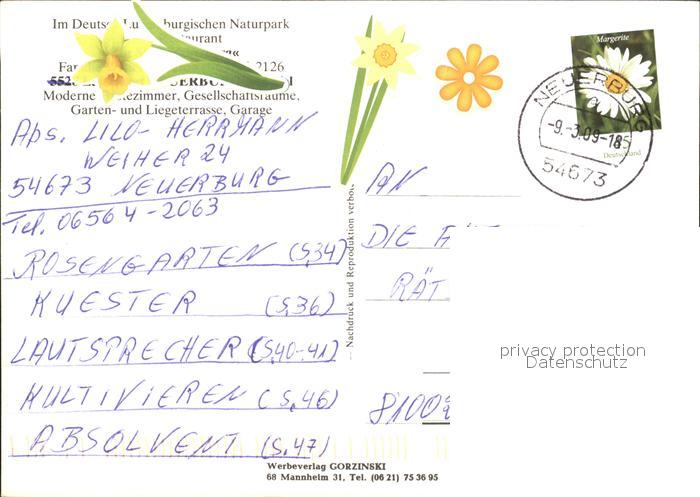 Im Deutsch Lu burgischen Naturpark
urant
2126
Moderne tezimmer, Gesellschaftsräume,
Garten- und Liegeterrasse, Garage
Abs. LILO HERRMANN
WEIHER 24
54673 NEUERBURG
Tel. 06564-2063
ROSENGARTEN (S.34)
KUESTER (S.36)
LAUTSPRECHER (S.40-41)
KULTIVIEREN (S.46)
ABSOLVENT (S.47)
Nachdruck und Reproduktion verbot
Werbeverlag GORZINSKI
68 Mannheim 31, Tel. (06 21) 75 36 95
Margerite
Deutschland
NEUERBURG
a
-9.-3.09-18
54673
AN
DIE
RÄT
8100
privacy protection
Datenschutz